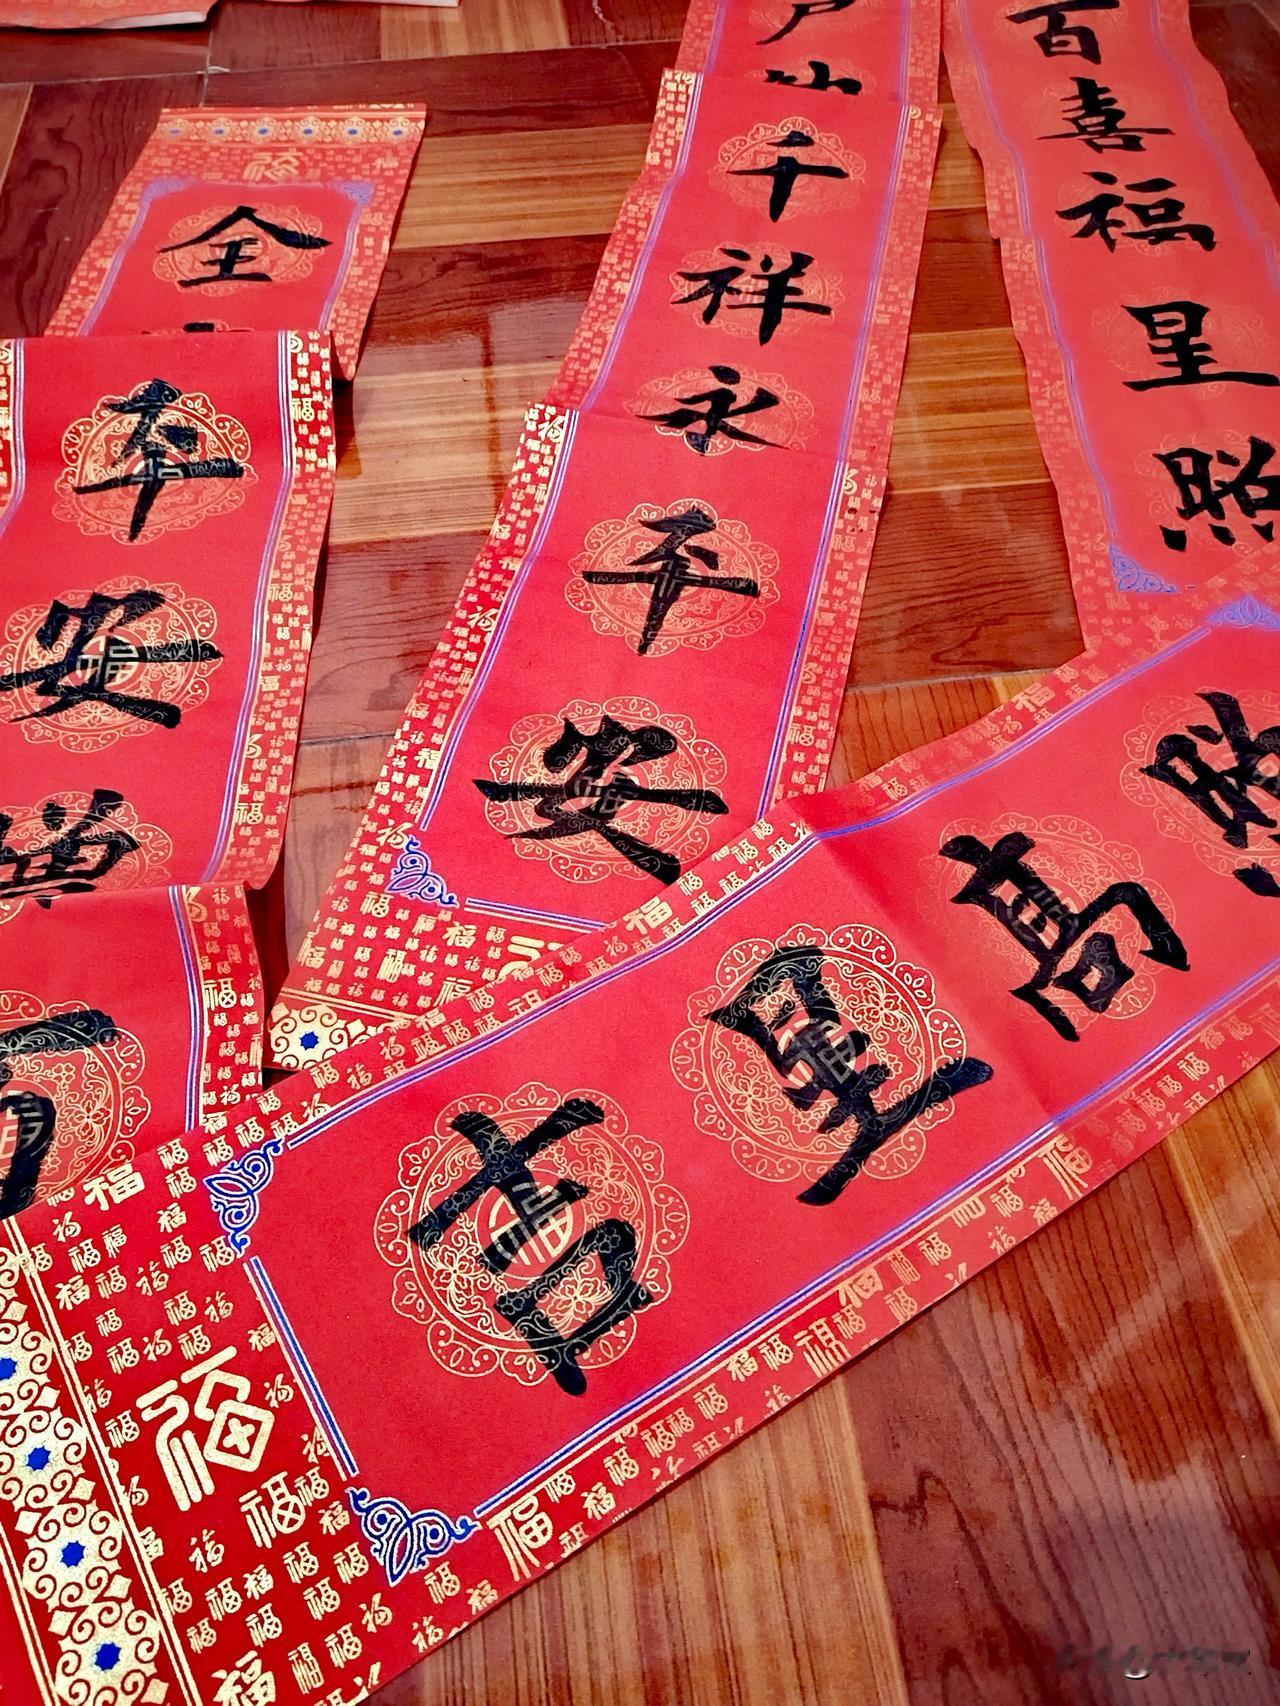 全
平安
千祥永平安
百喜福星照
吉星高照